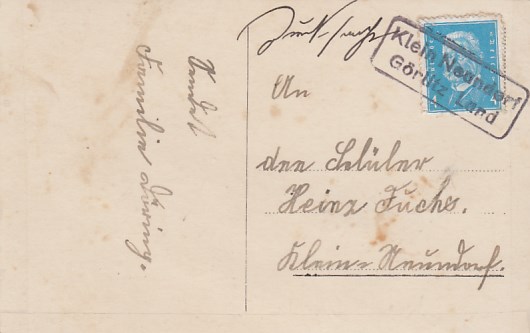 Drucksache
Klein Neundorf
Görlitz Land
An
den Schüler
Heinz Fuchs.
Klein-Neundorf.
Familie Döring.